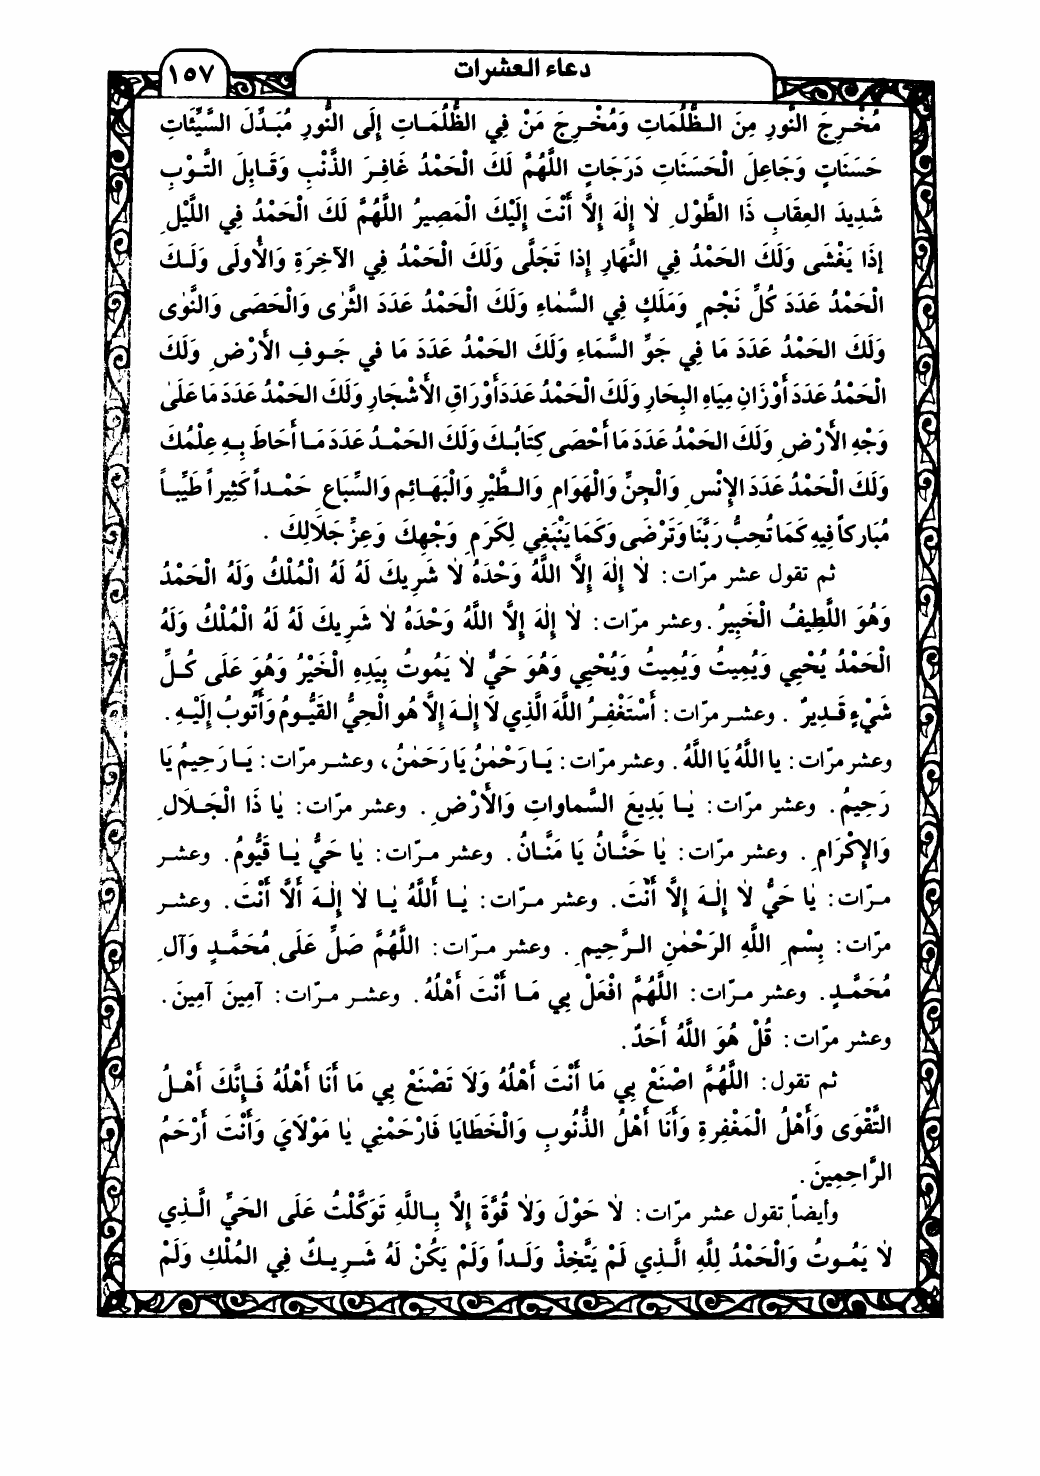 دعاء العشرات
١٥٧
مُخْرِجَ النُّورِ مِنَ الظُّلُمَاتِ وَمُخْرِجَ مَنْ فِي الظُّلُمَاتِ إِلَى النُّورِ مُبَدِّلَ السَّيِّئَاتِ
حَسَنَاتٍ وَجَاعِلَ الْحَسَنَاتِ دَرَجَاتٍ اللَّهُمَّ لَكَ الْحَمْدُ غَافِرَ الذَّنْبِ وَقَابِلَ التَّوْبِ
شَدِيدَ العِقَابِ ذَا الطَّوْلِ لَا إِلٰهَ إِلَّا أَنْتَ إِلَيْكَ الْمَصِيرُ اللَّهُمَّ لَكَ الْحَمْدُ فِي اللَّيْلِ
إِذَا يَغْشَى وَلَكَ الحَمْدُ فِي النَّهَارِ إِذا تَجَلَّى وَلَكَ الْحَمْدُ فِي الآخِرَةِ وَالْأُولَى وَلَكَ
الْحَمْدُ عَدَدَ كُلِّ نَجْمٍ وَمَلَكٍ فِي السَّمَاءِ وَلَكَ الْحَمْدُ عَدَدَ الثَّرٰى وَالْحَصَى وَالنَّوٰى
وَلَكَ الحَمْدُ عَدَدَ مَا فِي جَوِّ السَّمَاءِ وَلَكَ الحَمْدُ عَدَدَ مَا في جَوفِ الأَرْضِ وَلَكَ
الْحَمْدُ عَدَدَ أَوْزَانِ مِيَاهِ البِحَارِ وَلَكَ الْحَمْدُ عَدَدَ أَوْرَاقِ الأَشْجَارِ وَلَكَ الحَمْدُ عَدَدَ مَا عَلَىٰ
وَجْهِ الأَرْضِ وَلَكَ الحَمْدُ عَدَدَ مَا أَحْصَى كِتَابُكَ وَلَكَ الحَمْدُ عَدَدَ مَا أَحَاطَ بِهِ عِلْمُكَ
وَلَكَ الْحَمْدُ عَدَدَ الإِنْسِ وَالْجِنِّ وَالْهَوَامِ وَالطَّيْرِ وَالْبَهَائِمِ وَالسِّبَاعِ حَمْداً كَثِيراً طَيِّباً
مُبَارَكاً فِيهِ كَمَا تُحِبُّ رَبَّنَا وَتَرْضَى وَكَمَا يَنْبَغِي لِكَرَمِ وَجْهِكَ وَعِزِّ جَلَالِكَ .
ثم تقول عشر مرّات: لَا إِلٰهَ إِلَّا اللَّهُ وَحْدَهُ لَا شَرِيكَ لَهُ لَهُ الْمُلْكُ وَلَهُ الْحَمْدُ
وَهُوَ اللَّطِيفُ الْخَبِيرُ. وعشر مرّات: لَا إِلٰهَ إِلَّا اللَّهُ وَحْدَهُ لَا شَرِيكَ لَهُ لَهُ الْمُلْكُ وَلَهُ
الْحَمْدُ يُحْيِي وَيُمِيتُ وَيُمِيتُ وَيُحْيِي وَهُوَ حَيٌّ لَا يَمُوتُ بِيَدِهِ الْخَيْرُ وَهُوَ عَلَى كُلِّ
شَيْءٍ قَدِيرٌ . وعشر مرّات: أَسْتَغْفِرُ اللَّهَ الَّذِي لَا إِلٰهَ إِلَّا هُو الْحِيُّ القَيُّومُ وَأَتُوبُ إِلَيْهِ.
وعشر مرّات: يا اللَّهُ يَا اللَّهُ. وعشر مرّات: يَا رَحْمٰنُ يَا رَحَمٰنُ، وعشر مرّات: يَا رَحِيمُ يَا
رَحِيمُ. وعشر مرّات: يَا بَدِيعَ السَّماواتِ وَالْأَرْضِ. وعشر مرّات: يَا ذَا الْجَلَالِ
وَالإِكْرَامِ. وعشر مرّات: يَا حَنَّانُ يَا مَنَّانُ. وعشر مرّات: يَا حَيُّ يَا قَيُّومُ. وعشر
مرّات: يَا حَيُّ لَا إِلٰهَ إِلَّا أَنْتَ. وعشر مرّات: يَا أَللَّهُ يَا لَا إِلٰهَ أَلَّا أَنْتَ. وعشر
مرّات: بِسْمِ اللَّهِ الرَحْمٰنِ الرَّحِيمِ. وعشر مرّات: اللَّهُمَّ صَلِّ عَلَى مُحَمَّدٍ وَآلِ
مُحَمَّدٍ. وعشر مرّات: اللَّهُمَّ افْعَلْ بِي مَا أَنْتَ أَهْلُهُ. وعشر مرّات: آمِينَ آمِينَ.
وعشر مرّات: قُلْ هُوَ اللَّهُ أَحَدٌ.
ثم تقول: اللَّهُمَّ اصْنَعْ بِي مَا أَنْتَ أَهْلُهُ وَلَا تَصْنَعْ بِي مَا أَنَا أَهْلُهُ فَإِنَّكَ أَهْلُ
التَّقْوَى وَأَهْلُ الْمَغْفِرةِ وَأَنَا أَهْلُ الذُّنُوبِ وَالْخَطَايَا فَارْحَمْنِي يَا مَوْلَايَ وَأَنْتَ أَرْحَمُ
الرَّاحِمِينَ.
وأيضاً تقول عشر مرّات: لَا حَوْلَ وَلَا قُوَّةَ إِلَّا بِاللَّهِ تَوَكَّلْتُ عَلَى الحَيِّ الَّذِي
لَا يَمُوتُ وَالْحَمْدُ لِلَّهِ الَّذِي لَمْ يَتَّخِذْ وَلَداً وَلَمْ يَكُنْ لَهُ شَرِيكٌ فِي المُلْكِ وَلَمْ